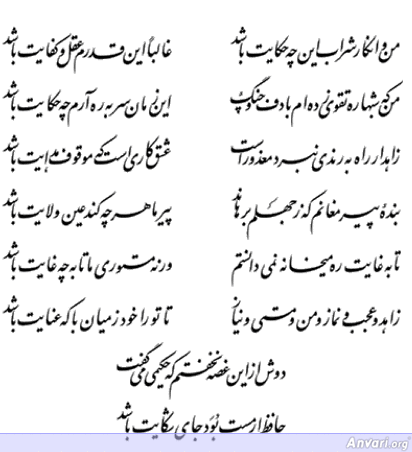 من و انکار شراب این چه حکایت باشد غالبا این قدرم عقل و کفایت باشد
من که شبها ره تقوی زده‌ام با دف و چنگ این زمان سر به ره آرم چه حکایت باشد
زاهد ار راه به رندی نبرد معذور است عشق کاریست که موقوف هدایت باشد
بنده پیر مغانم که ز جهلم برهاند پیر ما هر چه کند عین ولایت باشد
تا به غایت ره میخانه نمی دانستم ور نه مستوری ما تا به چه غایت باشد
زاهد و عجب و نماز و من و مستی و نیاز تا تو را خود ز میان با که عنایت باشد
دوش از این غصه نخفتم که حکیمی می گفت
حافظ ار مست بود جای شکایت باشد
Anvari.org